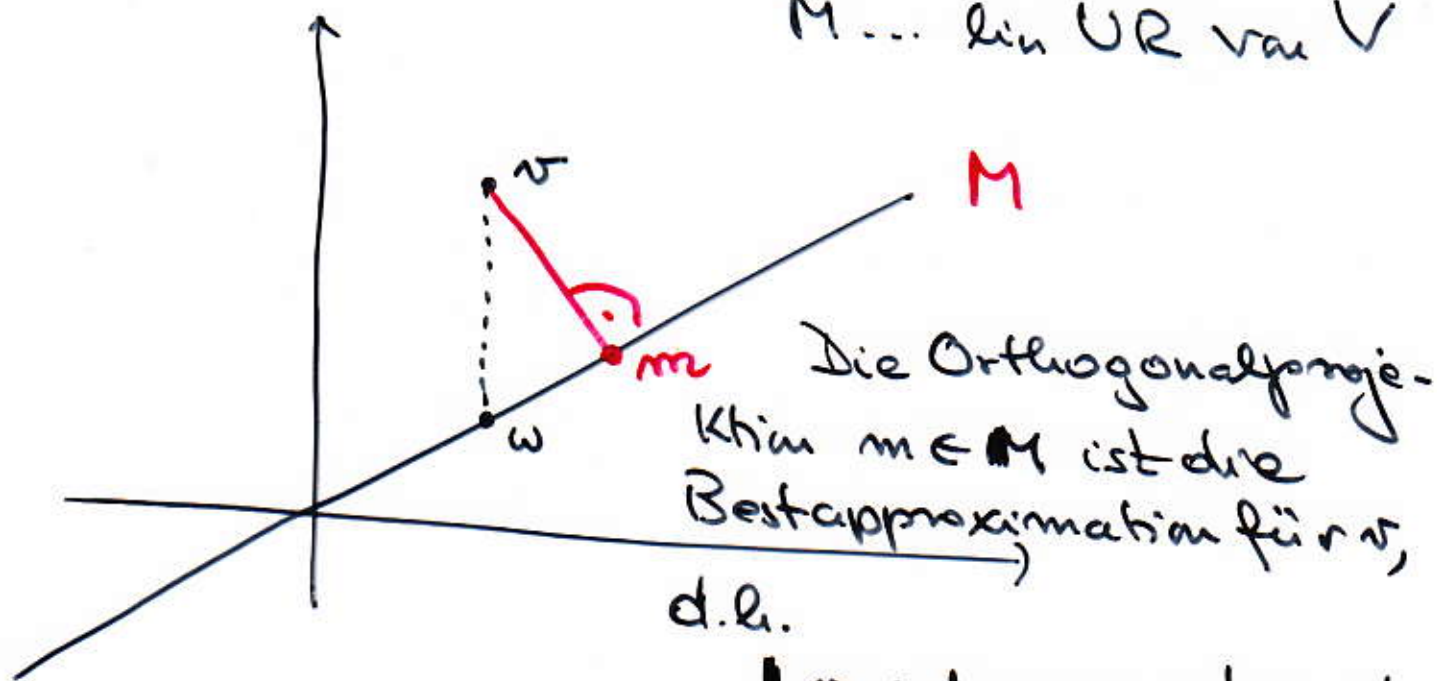 M... lin UR von V
v
M
m
w
Die Orthogonalproje-
ktion m ∈ M ist die
Bestapproximation für v,
d.h.